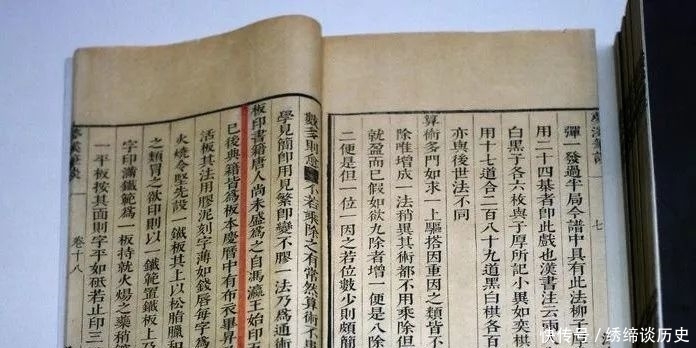 夢溪筆談 七
彈一發過半局今譜中具有此法柳子
用二十四棊者即此戲也漢書注云兩
白黑子各六枚與子厚所記小異如奕棋
用十七道合二百八十九道黑白棋各百
亦與後世法不同
算術多門如求一上驅搭因重因之類皆不
除唯增成一法稍異其術都不用乘除但
就盈而已假如欲九除者增一便是八除
二便是但一位一因之若位數少則頗簡
數多則愈 不若乘除之有常然算術不
學見簡即用見繁即變不膠一法乃爲通術
板印書籍唐人尚未盛爲之自馮瀛王始印
已後典籍皆爲板本慶曆中有布衣畢昇
活板其法用膠泥刻字薄如錢唇每字爲
火燒令堅先設一鐵板其上以松脂臘和
之類冒之欲印則以一鐵範置鐵板上
字印滿鐵範爲一板持就火煬之藥稍
一平板按其面則字平如砥若止印三
夢溪筆談 卷十八
快传号 / 绣缔谈历史